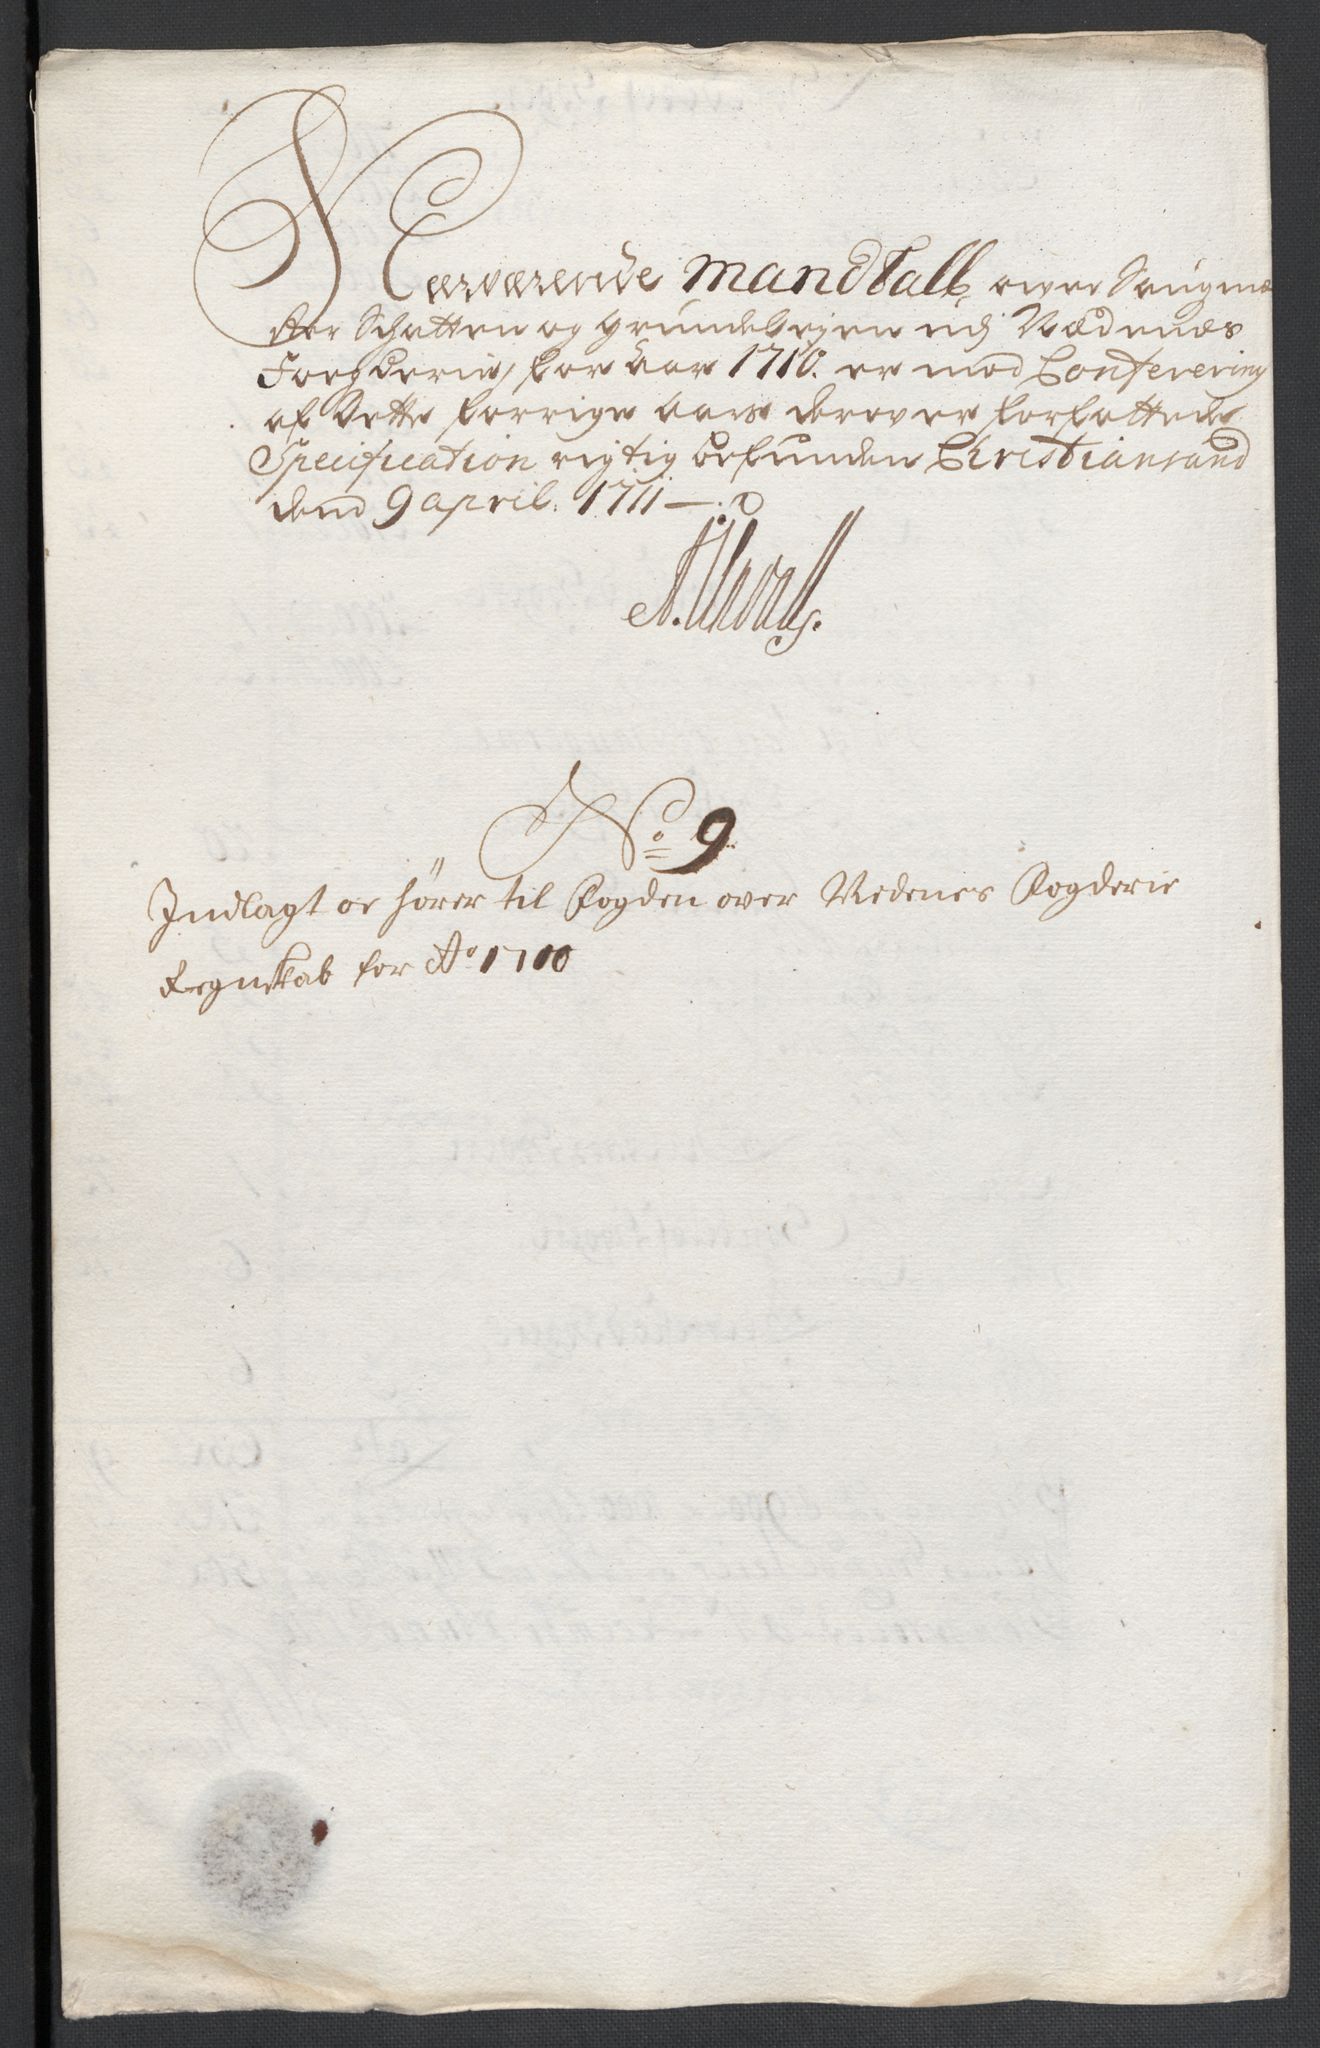 Nærværende Mandtall ower Saugme
ster Schatten og grundeleyen udj Nædenes
Fogderie, for aar 1710. er mod Conferering
af dette forrige aars derover forfattede
Specification rigtig befunden Christiansand
dend 9 april. 1711
No 9
Indlagt oc hører til Fogden over Nedenes Fogderie
Regnskab for Ao 1710